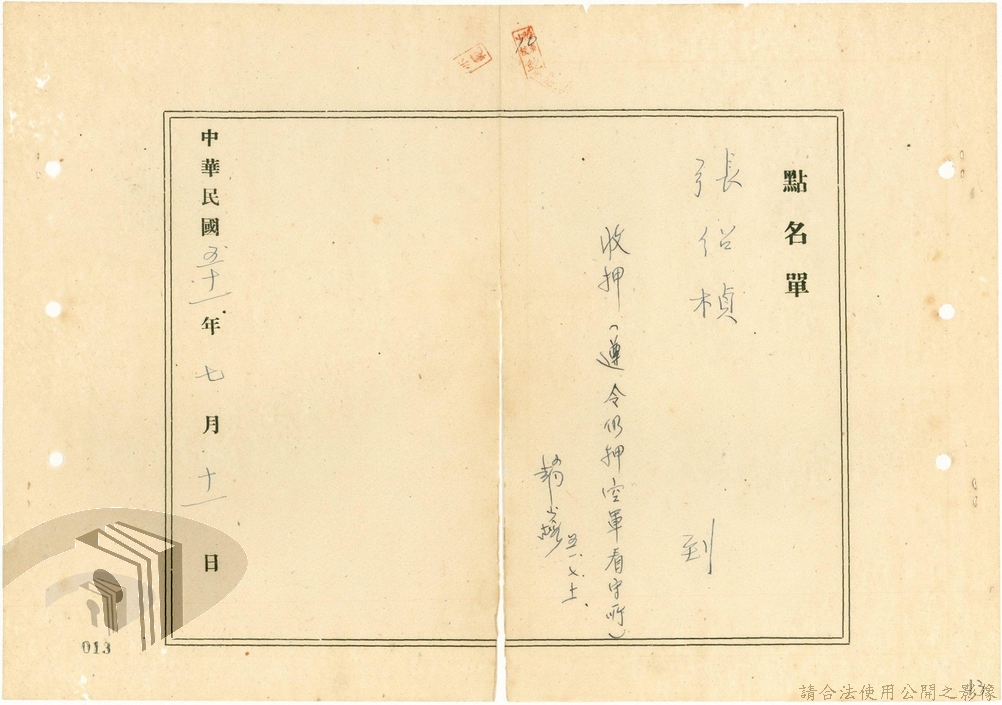 點名單
張紹楨 到
收押(遵令仍押空軍看守所)
五一、七、十一、
中華民國五十一年七月十一日
013
13
請合法使用公開之影像